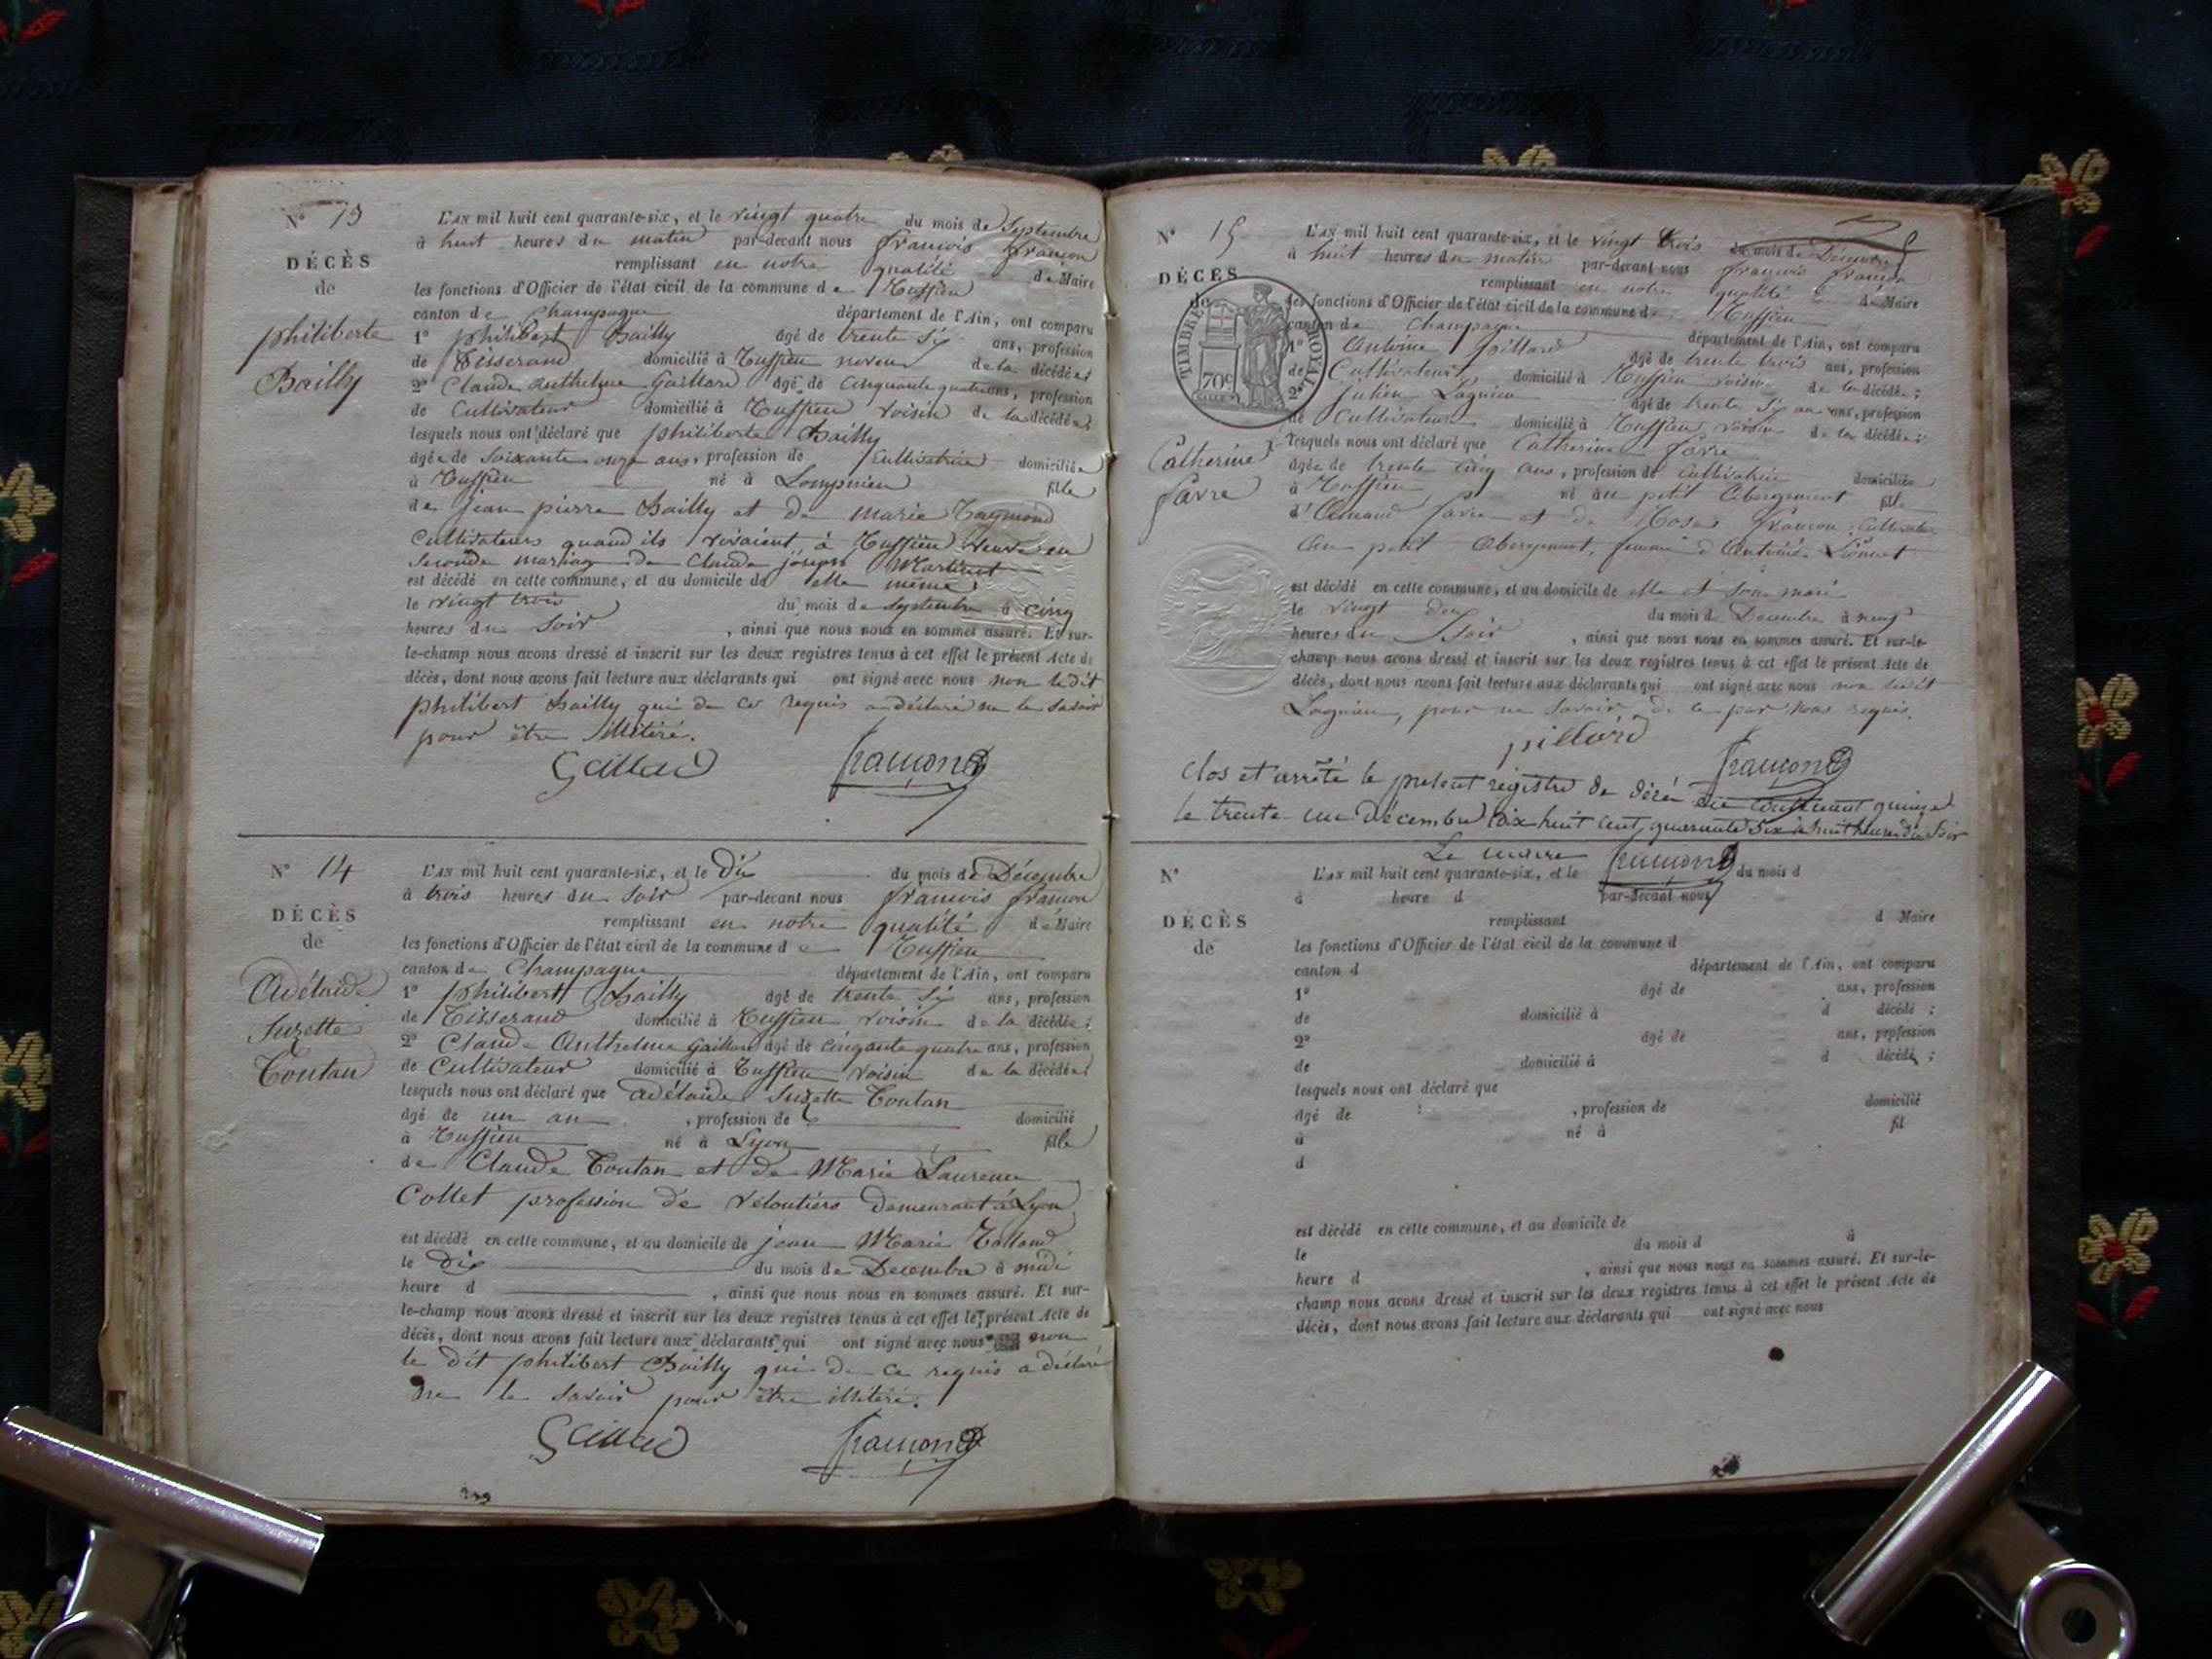 N° 13
DÉCÈS
de
philiberte
Bailly
L'AN mil huit cent quarante-six, et le vingt quatre du mois de Septembre
à huit heures du matin par-devant nous françois françon
remplissant en notre qualité de Maire
les fonctions d'Officier de l'état civil de la commune de Ruffieu
canton de Champagne département de l'Ain, ont comparu
1° philibert Bailly âgé de trente six ans, profession
de Tisserand domicilié à Ruffieu neveu de la décédée ;
2° Claude Anthelme Gaillard âgé de cinquante quatre ans, profession
de Cultivateur domicilié à Ruffieu voisin de la décédée ;
lesquels nous ont déclaré que philiberte Bailly
âgée de soixante onze ans, profession de Cultivatrice domiciliée
à Ruffieu né à Lompnieu fille
de jean pierre Bailly et de marie
Cultivateurs quand ils vivaient à Ruffieu veuve en
seconde mariage de Claude joseph Martinet
est décédé en cette commune, et au domicile de elle même
le vingt trois du mois de septembre à cinq
heures du Soir , ainsi que nous nous en sommes assuré. Et sur-
le-champ nous avons dressé et inscrit sur les deux registres tenus à cet effet le présent Acte de
décès, dont nous avons fait lecture aux déclarants qui ont signé avec nous non le dit
philibert Bailly qui de ce requis a déclaré ne le savoir
pour être illitéré.
Gaillard françon
N° 14
DÉCÈS
de
Adélaïde
Suzette
Toutan
L'AN mil huit cent quarante-six, et le Dix du mois de Décembre
à trois heures du soir par-devant nous françois françon
remplissant en notre qualité de Maire
les fonctions d'Officier de l'état civil de la commune de Ruffieu
canton de Champagne département de l'Ain, ont comparu
1° philibert Bailly âgé de trente six ans, profession
de Tisserand domicilié à Ruffieu voisin de la décédée ;
2° Claude Anthelme Gaillard âgé de cinqante quatre ans, profession
de Cultivateur domicilié à Ruffieu voisin de la décédée ;
lesquels nous ont déclaré que adélaïde Suzette Toutan
âgé de un an , profession de domicilié
à Ruffieu né à Lyon fille
de Claude Toutan et de Marie Laurence
Collet profession de veloutiers Demeurant à Lyon
est décédé en cette commune, et au domicile de jean Marie
le Dix du mois de Decembre à midi
heure d , ainsi que nous nous en sommes assuré. Et sur-
le-champ nous avons dressé et inscrit sur les deux registres tenus à cet effet le présent Acte de
décès, dont nous avons fait lecture aux déclarants qui ont signé avec nous non
le dit philibert Bailly qui de ce requis a déclaré
ne le savoir pour être illitéré.
Gaillard françon
N° 15
DÉCÈS
de
TIMBRE ROYAL
70c
Catherine
favre
L'AN mil huit cent quarante-six, et le vingt trois du mois de Décembre
à huit heures du matin par-devant nous françois françon
remplissant en notre qualité de Maire
les fonctions d'Officier de l'état civil de la commune de Ruffieu
canton de Champagne département de l'Ain, ont comparu
1° Antoine pillard âgé de trente trois ans, profession
de Cultivateur domicilié à Ruffieu voisin de la décédée ;
2° julien Lagnieu âgé de trente six ans, profession
de Cultivateur domicilié à Ruffieu voisin de la décédée ;
lesquels nous ont déclaré que Catherine favre
âgée de trente cinq ans, profession de Cultivatrice domiciliée
à Ruffieu né au petit Abergement fille
d'Amand favre et de Rose françon Cultivateurs
au petit Abergement, femme d'Antoine
est décédé en cette commune, et au domicile de elle et son mari
le vingt deux du mois de Decembre à neuf
heures du Soir , ainsi que nous nous en sommes assuré. Et sur-le-
champ nous avons dressé et inscrit sur les deux registres tenus à cet effet le présent Acte de
décès, dont nous avons fait lecture aux déclarants qui ont signé avec nous non ledit
Lagnieu, pour ne savoir de ce par nous requis.
pillard françon
Clos et arrêté le présent régistre de décés contenant quinze
le trente un Décembre dix huit cent quarante six à huit heures du Soir
Le maire françon
N°
DÉCÈS
de
L'AN mil huit cent quarante-six, et le du mois d
à heure d par-devant nous
remplissant d Maire
les fonctions d'Officier de l'état civil de la commune d
canton d département de l'Ain, ont comparu
1° âgé de ans, profession
de domicilié à d décédé ;
2° âgé de ans, profession
de domicilié à d décédé ;
lesquels nous ont déclaré que
âgé de , profession de domicilié
à né à fil
d
est décédé en cette commune, et au domicile de
le du mois d à
heure d , ainsi que nous nous en sommes assuré. Et sur-le-
champ nous avons dressé et inscrit sur les deux registres tenus à cet effet le présent Acte de
décès, dont nous avons fait lecture aux déclarants qui ont signé avec nous